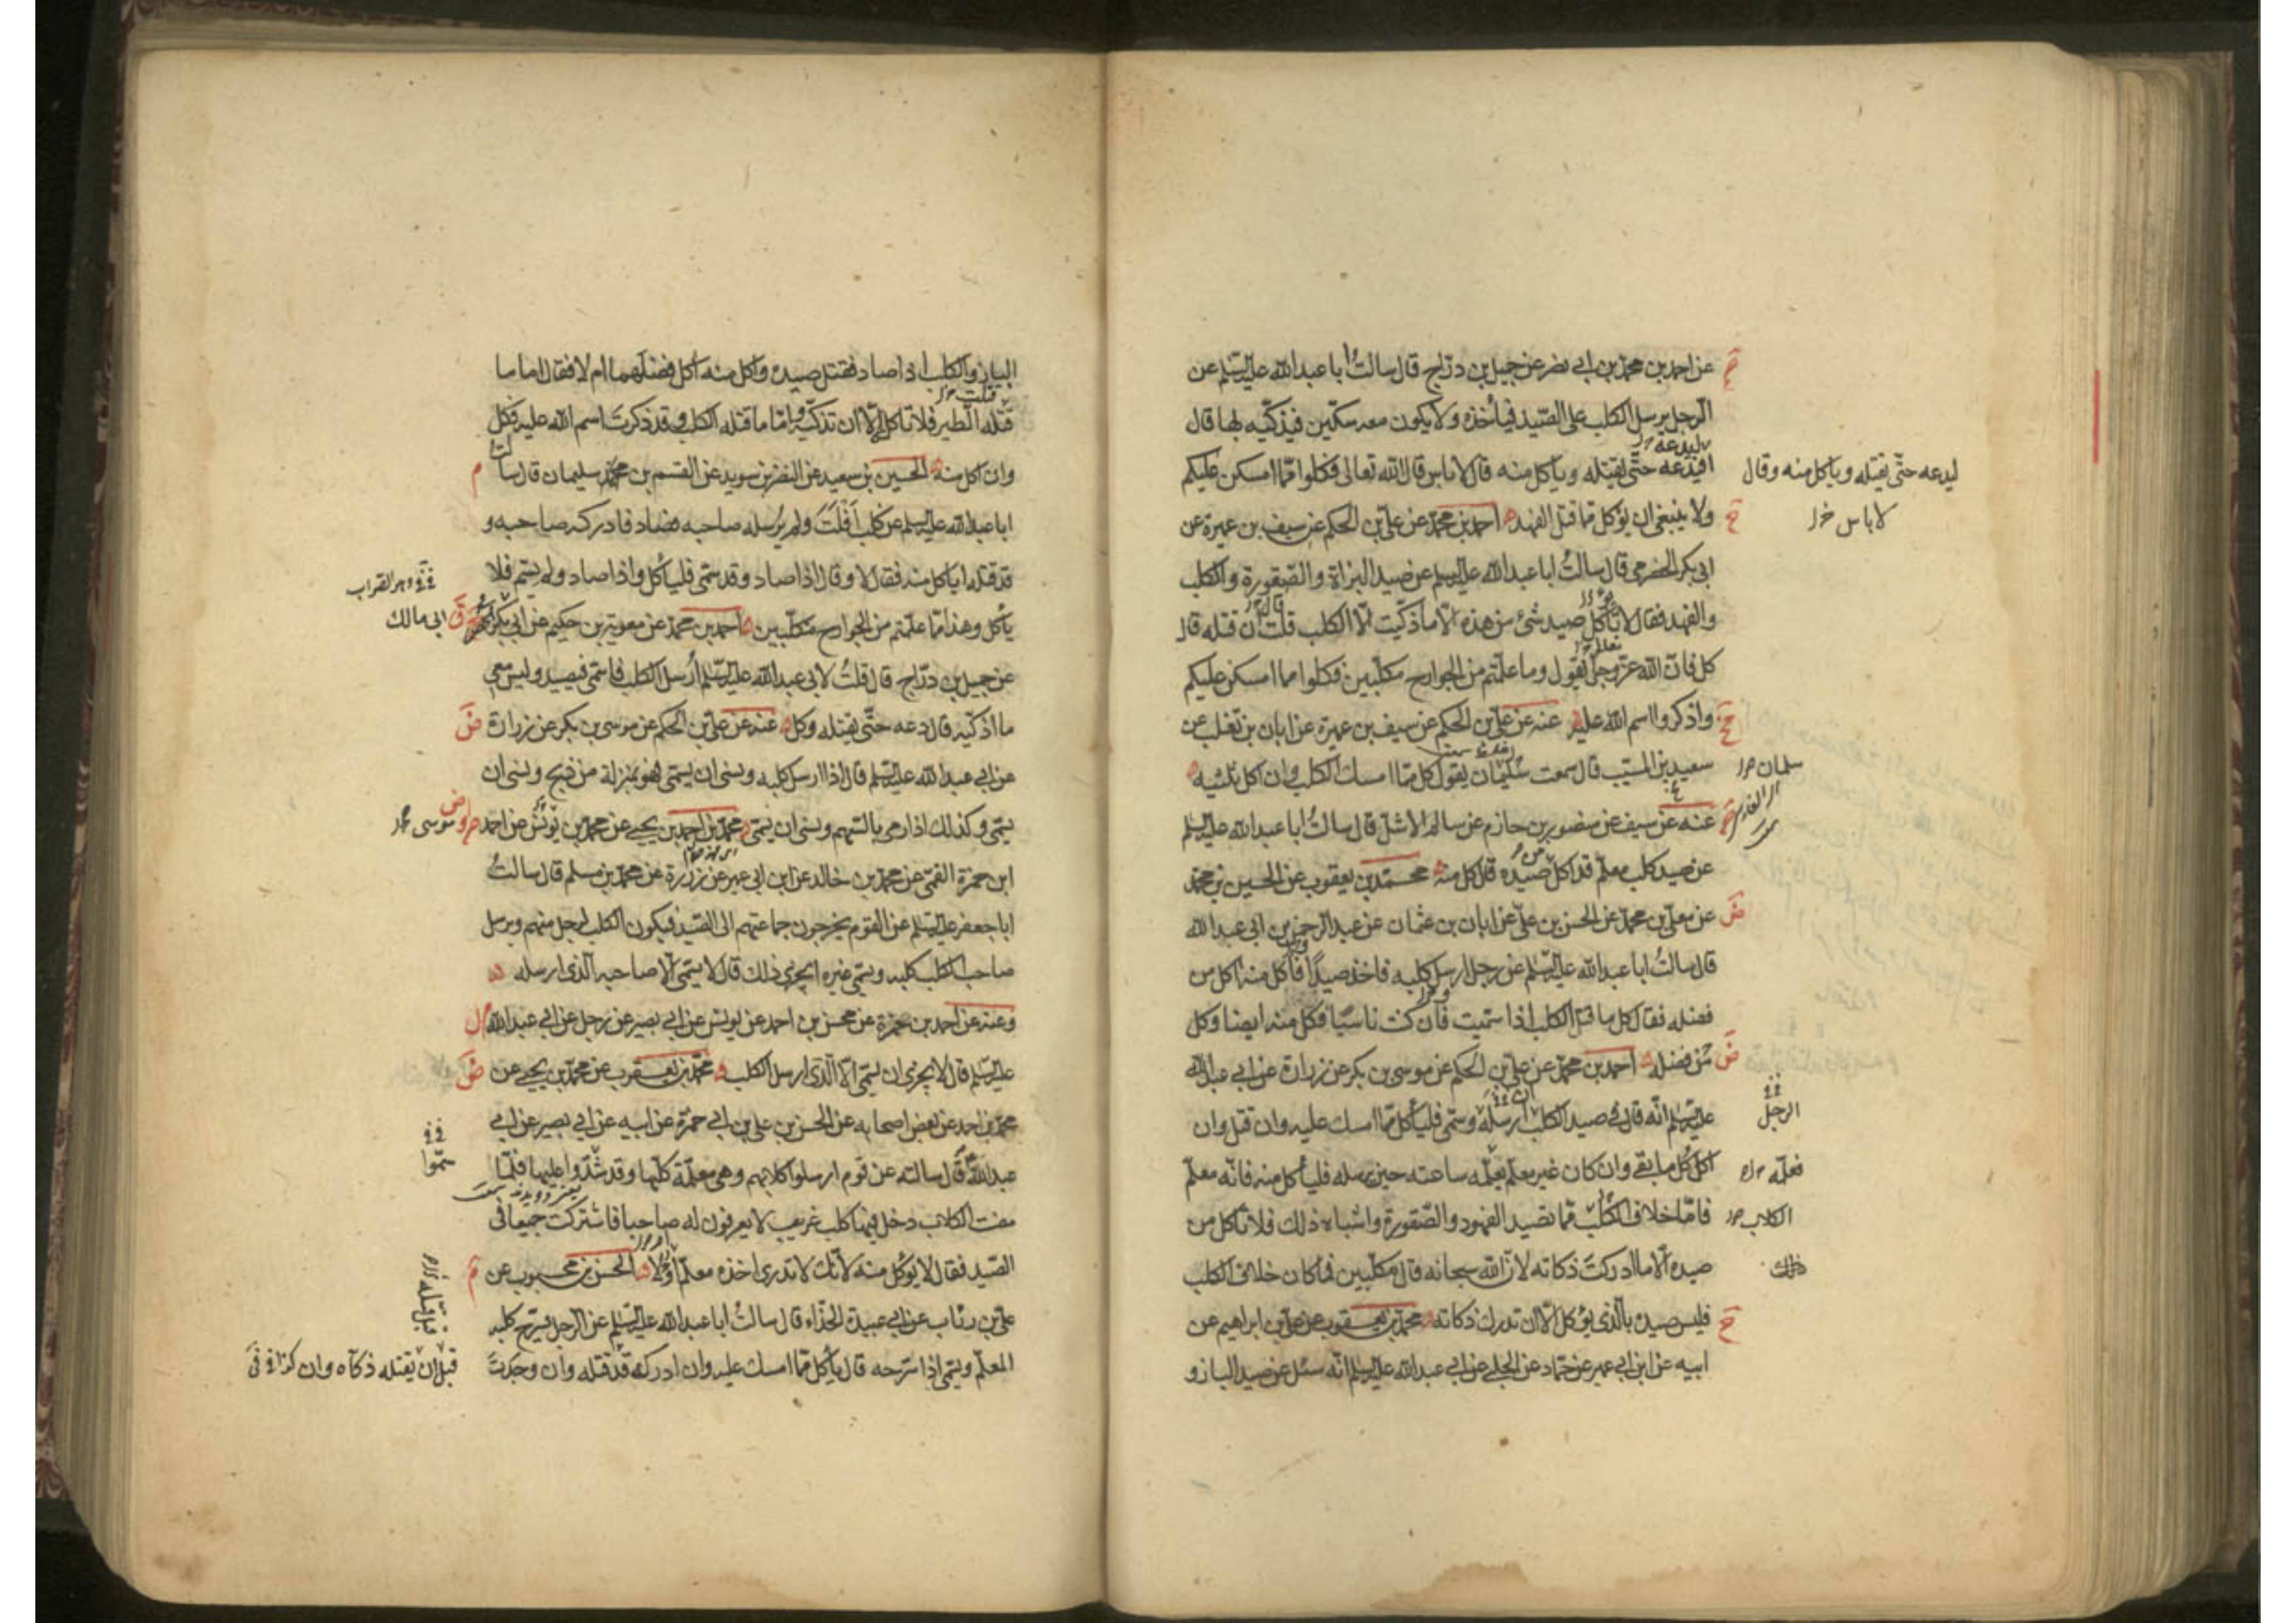 عن احمد بن محمد بن ابي نصر عن جميل بن دراج قال سالتُ ابا عبد الله عليه السلم عن
الرجل يرسل الكلب على الصّيد فياخذه ولا يكون معه سكّين فيذكّيه بها قال
ليدعه
افيدعه حتّى يقتله وياكل منه قال لاباس قال الله تعالى فكلوا ممّا امسكن عليكم
ليدعه حتّى يقتله وياكل منه وقال
لاباس
ولا ينبغي ان يؤكل ممّا قتل الفهد احمد بن محمّد عن علي بن الحكم عن سيف بن عميرة عن
ابي بكر الحضرمي قال سالتُ ابا عبد الله عليه السلم عن صيد البزاة والصّقورة والكلب
والفهد فقال لا تأكل صيد شئ من هذه الّا ما ذكّيت الّا الكلب قلت ان قتله قال
تعالى
كل فانّ الله عزّ وجلّ يقول وما علّمتم من الجوارح مكلّبين فكلوا مما امسكن عليكم
واذكروا اسم الله عليه عنه عن علي بن الحكم عن سيف بن عميرة عن ابان بن تغلب عن
سعيد بن المسيّب قال سمعت سليمان يقول كل ممّا امسك الكلب وان اكل ثلثيه
سلمان
عنه عن سيف عن منصور بن حازم عن سالم الاشلّ قال سالتُ ابا عبد الله عليه السلم
عن صيد كلب معلّم قد اكل صيده قال كل منه محمّد بن يعقوب عن الحسين بن محمّد
عن معلّى بن محمّد عن الحسن بن علي عن ابان بن عثمان عن عبد الرحمن بن ابي عبد الله
قال سالتُ ابا عبد الله عليه السلم عن رجل ارسل كلبه فاخذ صيدًا فأكل منه آكل من
فضله فقال كل ما قتل الكلب اذا سمّيت فان كنت ناسيًا فكل منه ايضا وكل
من فضله احمد بن محمّد عن علي بن الحكم عن موسى بن بكر عن زرارة عن ابي عبد الله
عليه السلم انّه قال في صيد الكلب ارسله وسمّى فليأكل ممّا امسك عليه وان قتل وان
الرجل
اكل كُل ما بقي وان كان غير معلّم يعلّمه ساعته حين يرسله فليأكل منه فانّه معلّم
فعلّمه
فامّا خلاف الكلب ممّا تصيد الفهود والصّقورة واشباه ذلك فلا تأكل من
الكلاب
صيده الّا ما ادركتَ ذكاته لانّ الله سبحانه قال مكلّبين فما كان خلاف الكلب
ذلك
فليس صيده بالّذي يؤكل الّا ان تدرك ذكاته محمّد بن يعقوب عن علي بن ابراهيم عن
ابيه عن ابن ابي عمير عن حمّاد عن الحلبي عن ابي عبد الله عليه السلم انّه سئل عن صيد الباز و
الباز والكلب اذا صاد فقتل صيده واكل منه آكل فضلهما ام لا فقال اما ما
قتلت
قتله الطير فلا تاكل الّا ان تذكّيه وامّا ما قتله الكلب وقد ذكرتَ اسم الله عليه فكل
وان اكل منه الحسين بن سعيد عن النضر بن سويد عن القسم بن محمّد سليمان قال سالت
ابا عبد الله عليه السلم عن كلب اَفلَتَ ولم يُرسله صاحبه فصاد فادركه صاحبه و
قد قتله اياكل منه فقال لا وقال اذا صاد وقد سمّى فلياكل واذا صاد ولم يسمّ فلا
يأكل وهذا ممّا علّمتم من الجوارح مكلّبين احمد بن محمّد عن معوية بن حكيم عن ابي بكر الحضرمي
ابي مالك
عن جميل بن درّاج قال قلتُ لابي عبد الله عليه السلم اُرسل الكلب فاسمّى فيصيد وليس معي
ما اذكّيه قال دعه حتّى يقتله وكل عنه عن علي بن الحكم عن موسى بن بكر عن زرارة
عن ابي عبد الله عليه السلم قال اذا ارسل كلبه ونسي ان يسمّي فهو بمنزلة من ذبح ونسي ان
يسمّي وكذلك اذا رمى بالسّهم ونسي ان يسمّي محمّد بن احمد بن يحيى عن محمّد بن يونس عن احمد
موسى
ابن حمزة القمّي عن محمّد بن خالد عن ابن ابي عمير عن زرارة عن محمّد بن مسلم قال سالتُ
ابا جعفر عليه السلم عن القوم يخرجون جماعتهم الى الصّيد فيكون الكلب لرجل منهم ويرسل
صاحب الكلب كلبه ويسمّي غيره ايجزي ذلك قال لا يسمّي الّا صاحبه الّذي ارسله
وعنه عن احمد بن حمزة عن محسن بن احمد عن يونس عن ابي بصير عن رجل عن ابي عبد الله
عليه السلم قال لا يجزي ان يسمّي الّا الّذي ارسل الكلب محمّد بن يعقوب عن محمّد بن يحيى عن
محمّد بن احمد عن بعض اصحابه عن الحسن بن علي بن ابي حمزة عن ابيه عن ابي بصير عن ابي
عبد الله قال سالته عن قوم ارسلوا كلابهم وهي معلّمة كلّها وقد شدّوا عليها فلمّا
سمّوا
مضت الكلاب دخل فيها كلب غريب لا يعرفون له صاحبا فاشتركت جميعا في
الصّيد فقال لا يؤكل منه لانّك لا تدري اخذه معلّم او لا الحسن بن محبوب عن
علي بن رئاب عن ابي عبيدة الحذّاء قال سالتُ ابا عبد الله عليه السلم عن الرجل يسرّح كلبه
المعلّم ويسمّي اذا سرّحه قال يأكل ممّا امسك عليه وان ادركه قد قتله وان وجدتَ
قبل ان يقتله ذكّاه وان